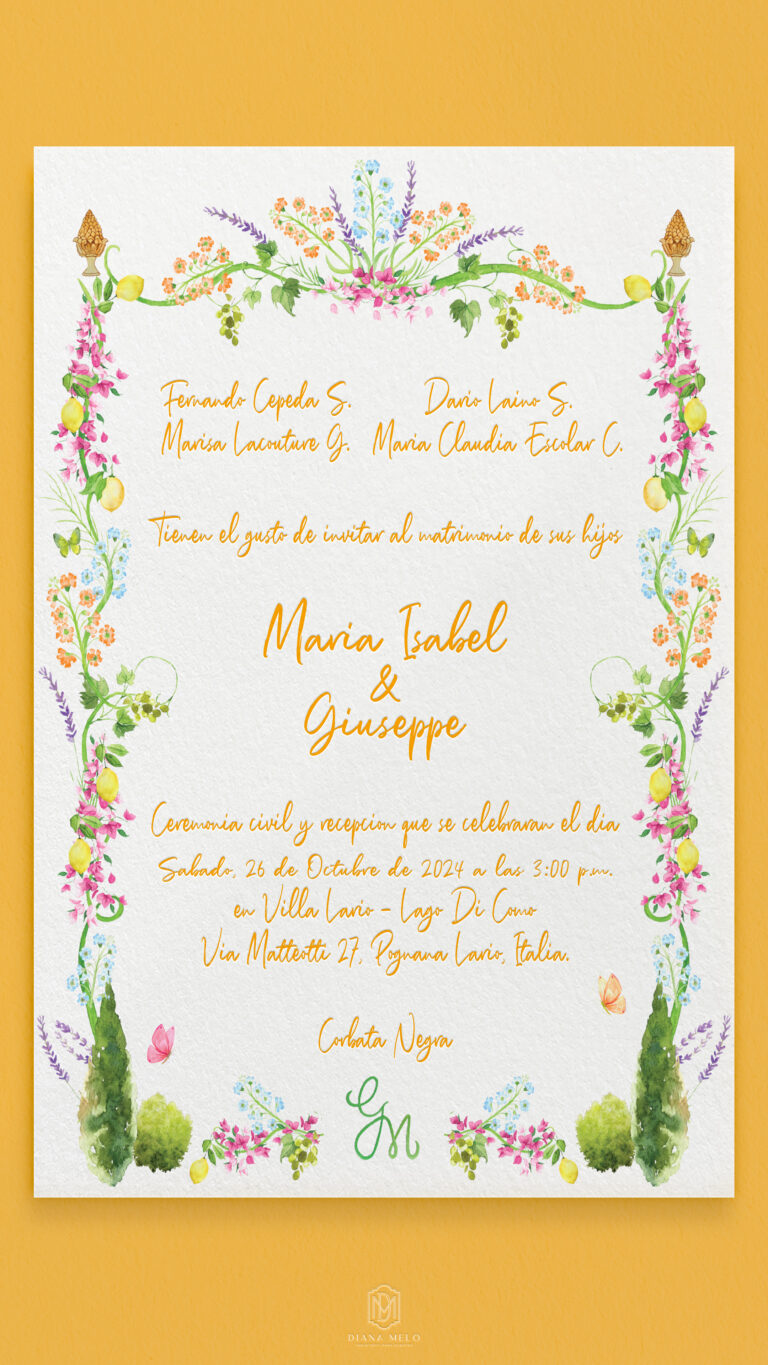 Fernando Cepeda S. Dario Laino S.
Marisa Lacouture G. Maria Claudia Escolar C.
Tienen el gusto de invitar al matrimonio de sus hijos
Maria Isabel
&
Giuseppe
Ceremonia civil y recepcion que se celebraran el dia
Sabado, 26 de Octubre de 2024 a las 3:00 p.m.
en Villa Lario - Lago Di Como
Via Matteotti 27, Pognana Lario, Italia.
Corbata Negra
GM
DM
DIANA MELO